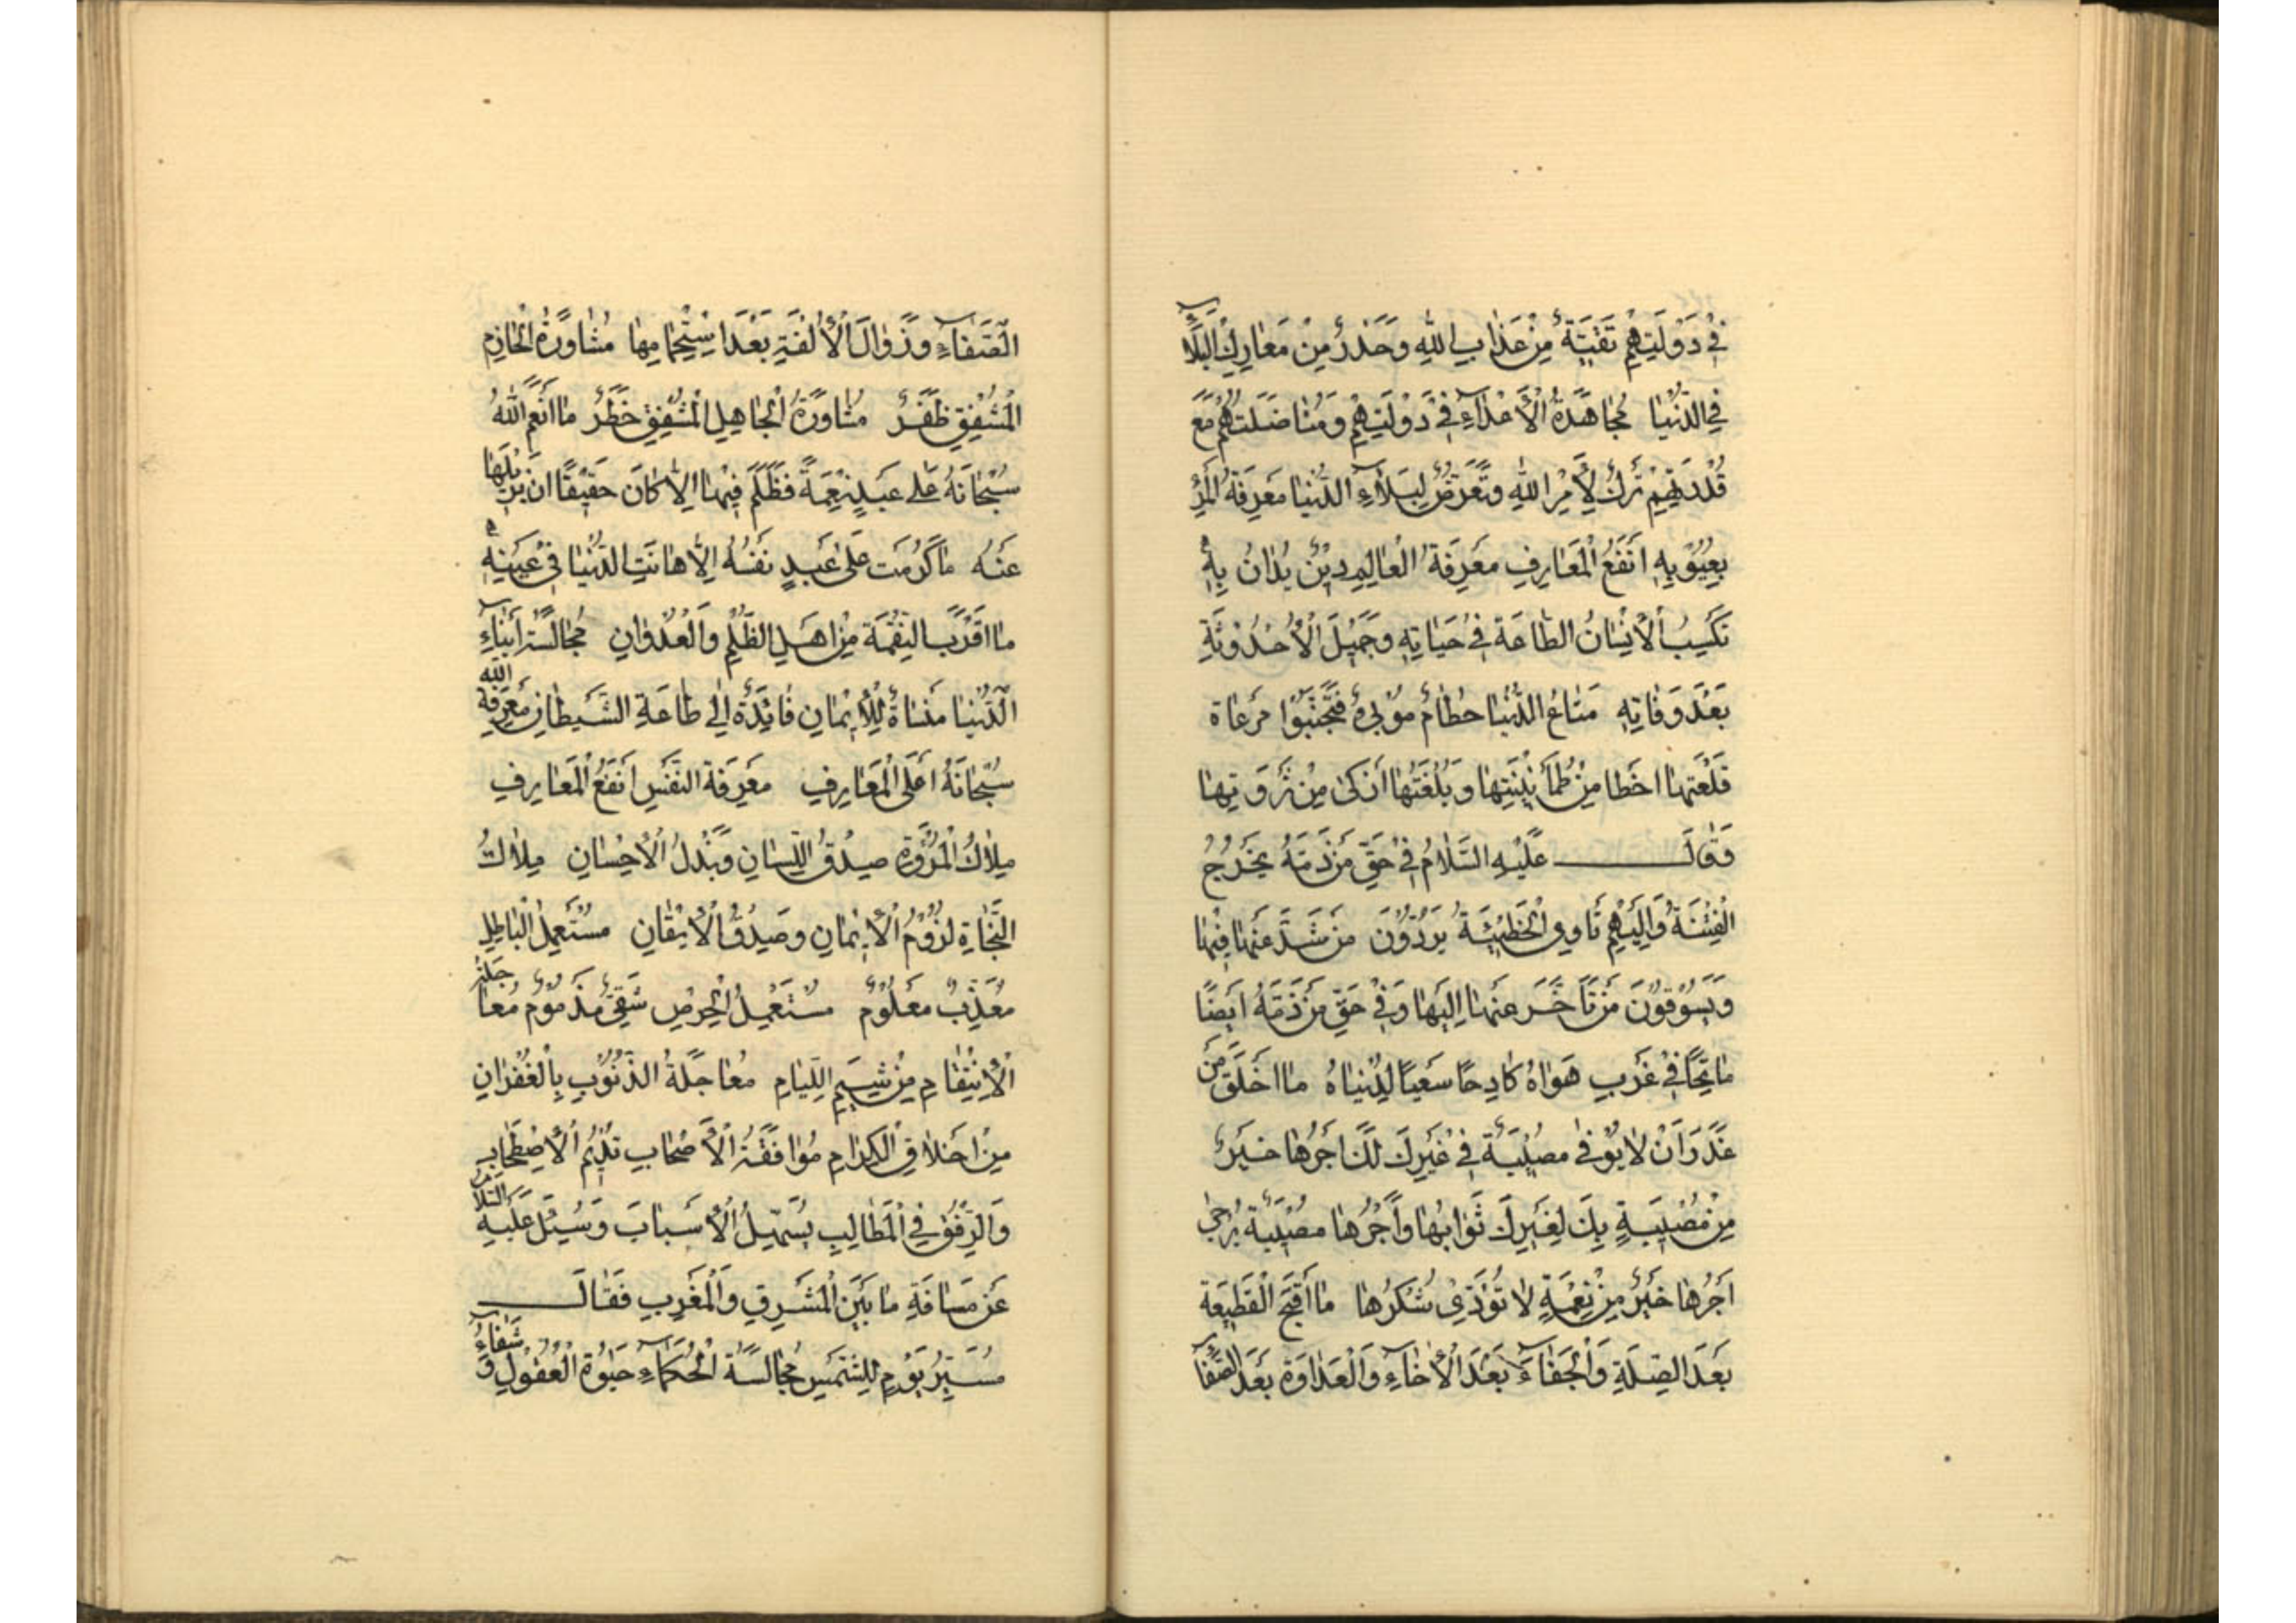 فِي دَوْلَتِهِمْ تَقِيَّةٌ مِنْ عَذَابِ اللهِ وَحَذَرٌ مِنْ مَعَارِكِ الْبَلَاءِ
فِي الدُّنْيَا مُجَاهَدَةُ الْأَعْدَاءِ فِي دَوْلَتِهِمْ وَمُنَاضَلَتُهُمْ مَعَ
قُدْرَتِهِمْ تَرْكٌ لِأَمْرِ اللهِ وَتَعَرُّضٌ لِبَلَاءِ الدُّنْيَا مَعْرِفَةُ الْمَرْءِ
بِعُيُوبِهِ أَنْفَعُ الْمَعَارِفِ مَعْرِفَةُ الْعَالِمِ دِيْنٌ يُدَانُ بِهِ
تَكْسِبُ الْأِنْسَانَ الطَّاعَةَ فِي حَيَاتِهِ وَجَمِيْلَ الْأُحْدُوثَةِ
بَعْدَ وَفَاتِهِ مَتَاعُ الدُّنْيَا حُطَامٌ مُوْبِئٌ فَتَجَنَّبُوا مَرْعَاةً
قَلْعَتُهَا أَحْظَا مِنْ طُمَأْنِيْنَتِهَا وَبُلْغَتُهَا أَزْكَى مِنْ ثَرْوَتِهَا
وَقَالَ عَلَيْهِ السَّلَامُ فِي حَقِّ مَنْ ذَمَّهُ يَخْرُجُ
الْفِتْنَةُ وَإِلَيْهِمْ تَأْوِي الْخَطِيْئَةُ يَرُدُّوْنَ مَنْ شَذَّ عَنْهَا فِيْهَا
وَيَسُوْقُوْنَ مَنْ تَأَخَّرَ عَنْهَا إِلَيْهَا وَفِي حَقِّ مَنْ ذَمَّهُ أَيْضًا
مَاتِحًا فِي غَرْبِ هَوَاهُ كَادِحًا سَعْيًا لِدُنْيَاهُ مَا أَخْلَقَ مَنْ
غَدَرَ أَنْ لَا يُوْفَى مُصِيْبَةٌ فِي غَيْرِكَ لَكَ أَجْرُهَا خَيْرٌ
مِنْ مُصِيْبَةٍ بِكَ لِغَيْرِكَ ثَوَابُهَا وَأَجْرُهَا مُصِيْبَةٌ يُرْجَى
أَجْرُهَا خَيْرٌ مِنْ نِعْمَةٍ لَا تُؤَدَّى شُكْرُهَا مَا أَقْبَحَ الْقَطِيْعَةَ
بَعْدَ الصِّلَةِ وَالْجَفَاءَ بَعْدَ الْأِخَاءِ وَالْعَدَاوَةَ بَعْدَ الصَّفَا
الصَّفَاءِ وَزَوَالَ الْأُلْفَةِ بَعْدَ اسْتِحْكَامِهَا مُشَاوَرَةُ الْحَازِمِ
الْمُشْفِقِ ظَفَرٌ مُشَاوَرَةُ الْجَاهِلِ الْمُشْفِقِ خَطَرٌ مَا أَنْعَمَ اللهُ
سُبْحَانَهُ عَلَى عَبْدٍ نِعْمَةً فَظَلَمَ فِيْهَا إِلَّا كَانَ حَقِيْقًا أَنْ يُزِيْلَهَا
عَنْهُ مَا كَرُمَتْ عَلَى عَبْدٍ نَفْسُهُ إِلَّا هَانَتِ الدُّنْيَا فِي عَيْنِهِ
مَا أَقْرَبَ النِّقْمَةَ مِنْ أَهْلِ الظُّلْمِ وَالْعُدْوَانِ مُجَالَسَةُ أَبْنَاءِ
الدُّنْيَا مَنْسَاةٌ لِلْأِيْمَانِ قَائِدَةٌ إِلَى طَاعَةِ الشَّيْطَانِ مَعْرِفَةُ اللهِ
سُبْحَانَهُ أَعْلَى الْمَعَارِفِ مَعْرِفَةُ النَّفْسِ أَنْفَعُ الْمَعَارِفِ
مِلَاكُ الْمُرُوَّةِ صِدْقُ اللِّسَانِ وَبَذْلُ الْأِحْسَانِ مِلَاكُ
النَّجَاةِ لُزُوْمُ الْأِيْمَانِ وَصِدْقُ الْأِيْقَانِ مُسْتَعْمِلُ الْبَاطِلِ
مُعَذَّبٌ مَعْلُوْمٌ مُسْتَعْمِلُ الْحِرْصِ شَقِيٌّ مَذْمُوْمٌ مُعَاجَلَةُ
الْأِنْتِقَامِ مِنْ شِيَمِ اللِّيَامِ مُعَاجَلَةُ الذُّنُوْبِ بِالْغُفْرَانِ
مِنْ أَخْلَاقِ الْكِرَامِ مُوَافَقَةُ الْأَصْحَابِ تُدِيْمُ الْأِصْطِحَابَ
وَالرِّفْقُ فِي الْمَطَالِبِ يُسَهِّلُ الْأَسْبَابَ وَسُئِلَ عَلَيْهِ السَّلَامُ
عَنْ مَسَافَةِ مَا بَيْنَ الْمَشْرِقِ وَالْمَغْرِبِ فَقَالَ
مَسِيْرُ يَوْمٍ لِلشَّمْسِ مُجَالَسَةُ الْحُكَمَاءِ حَيٰوةُ الْعُقُوْلِ وَشِفَاءُ